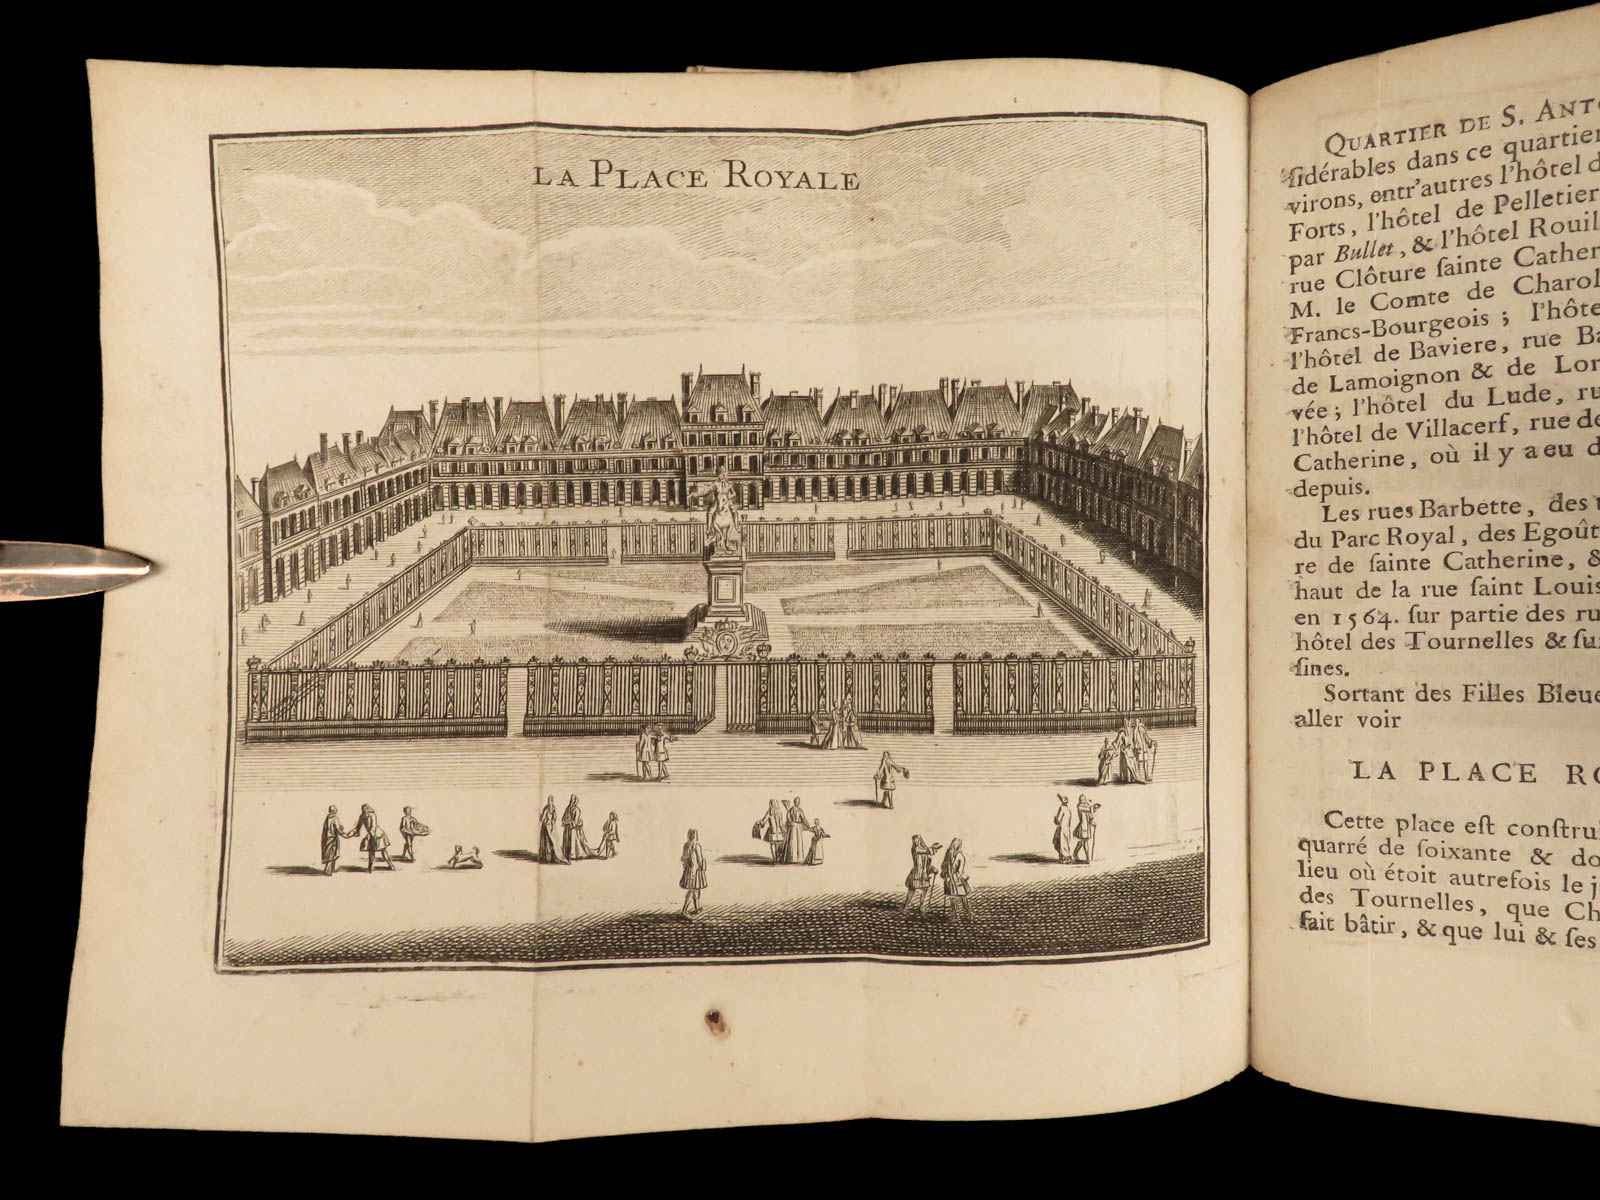 LA PLACE ROYALE
QUARTIER DE S.
ſidérables dans ce quartier
virons, entr'autres l'hôtel
Forts, l'hôtel de Pelletier
par Bullet, & l'hôtel
rue Clôture ſainte
M. le Comte de
Francs-Bourgeois ;
l'hôtel de Baviere, rue
de Lamoignon & de
vée ; l'hôtel du Lude,
l'hôtel de Villacerf, rue
Catherine, où il y a eu
depuis.
Les rues Barbette, des
du Parc Royal, des
re de ſainte Catherine,
haut de la rue ſaint Louis
en 1564. ſur partie des
hôtel des Tournelles &
ſines.
Sortant des Filles
aller voir
LA PLACE
Cette place eſt
quarré de ſoixante &
lieu où étoit autrefois le
des Tournelles, que
fait bâtir, & que lui & ſes